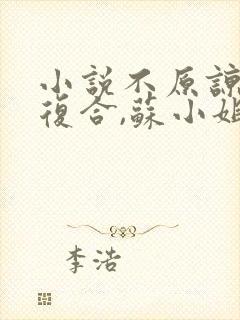 小説不原諒
復合,蘇小姐
李浩